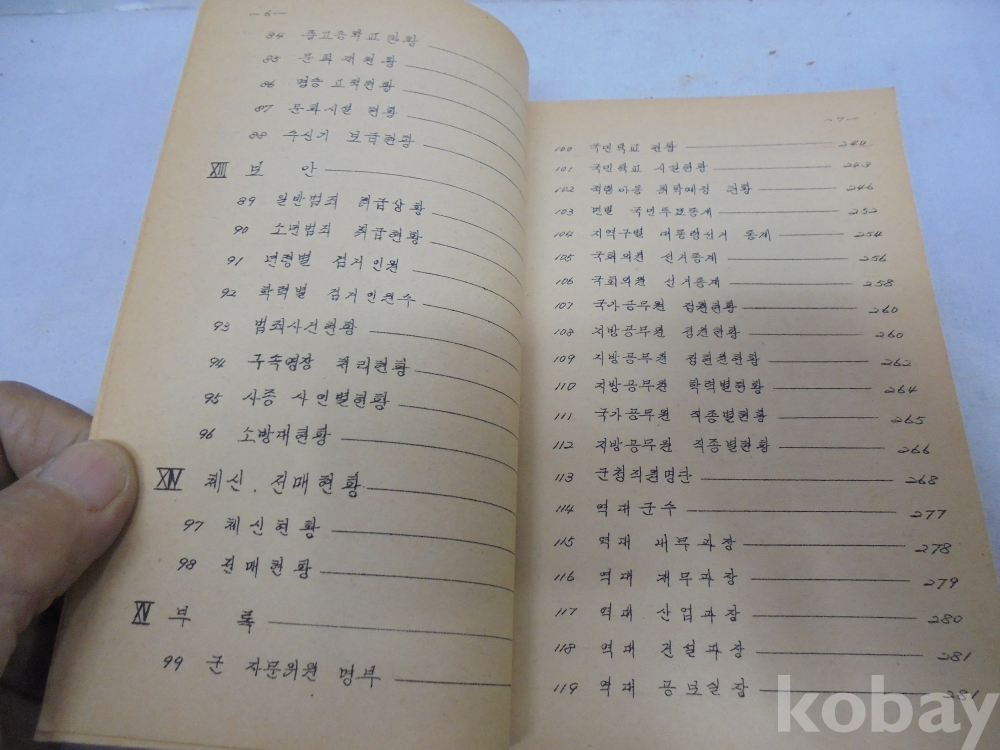 —6—
84 중고등학교 현황
85 문화재현황
86 접종 교적현황
87 문화시설 현황
88 수신기 보급현황
XIII 보 안
89 일반범죄 취급상황
90 소년범죄 취급현황
91 연령별 검거인원
92 학력별 검거인원수
93 범죄사건현황
94 구속영장 처리현황
95 사증 사인별현황
96 소방대현황
XIV 체신. 전매현황
97 체신현황
98 전매현황
XV 부 록
99 군 자문위원 명부
—7—
100 국민학교 현황 240
101 국민학교 시설현황 243
102 학령아동 취학예정 현황 246
103 면별 국민투표통계 252
104 지역구별 대통령선거 통계 254
105 국회의원 선거통계 256
106 국회의원 선거통계 258
107 국가공무원 정원현황 260
108 지방공무원 정원현황 260
109 지방공무원 현황 262
110 지방공무원 학력별현황 264
111 국가공무원 직종별현황 265
112 지방공무원 직종별현황 266
113 군청직원명단 268
114 역대군수 277
115 역대 내무과장 278
116 역대 재무과장 279
117 역대 산업과장 280
118 역대 건설과장 281
119 역대 공보실장 281
kobay